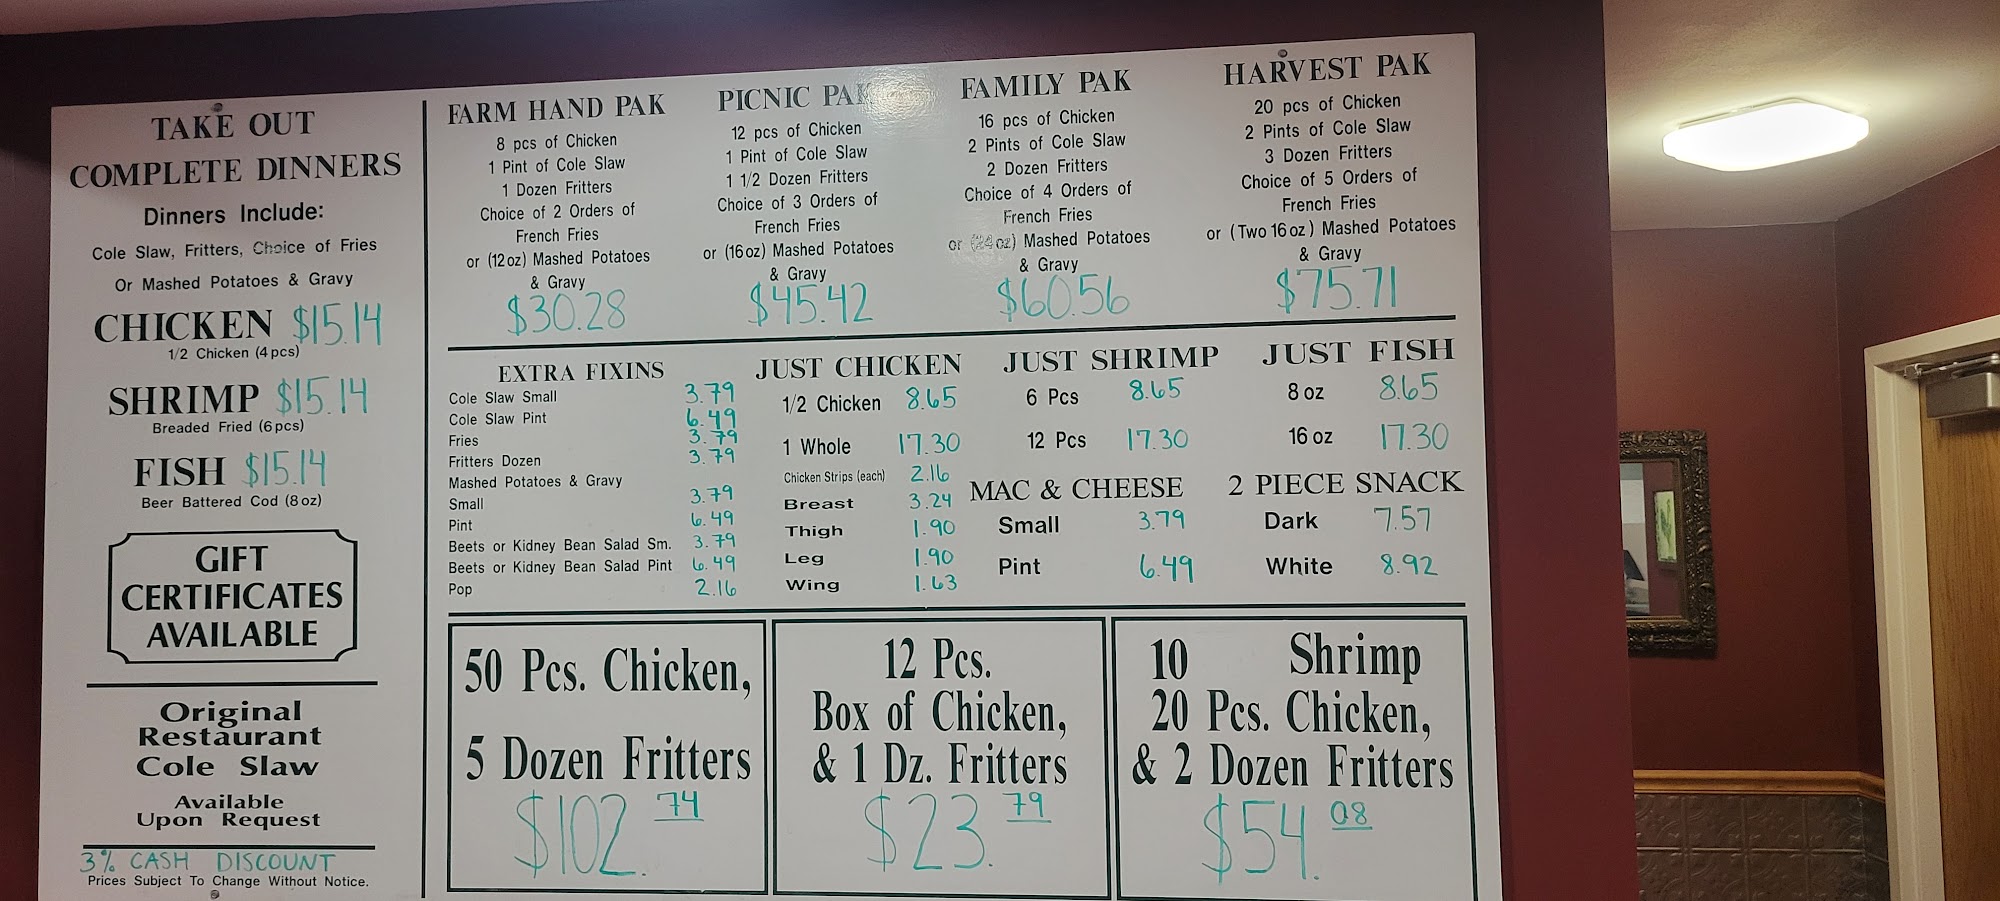 TAKE OUT
COMPLETE DINNERS
Dinners Include:
Cole Slaw, Fritters, Choice of Fries
Or Mashed Potatoes & Gravy
CHICKEN $15.14
1/2 Chicken (4 pcs)
SHRIMP $15.14
Breaded Fried (6 pcs)
FISH $15.14
Beer Battered Cod (8 oz)
GIFT
CERTIFICATES
AVAILABLE
Original
Restaurant
Cole Slaw
Available
Upon Request
3% CASH DISCOUNT
Prices Subject To Change Without Notice.
FARM HAND PAK
8 pcs of Chicken
1 Pint of Cole Slaw
1 Dozen Fritters
Choice of 2 Orders of
French Fries
or (12 oz) Mashed Potatoes
& Gravy
$30.28
PICNIC PAK
12 pcs of Chicken
1 Pint of Cole Slaw
1 1/2 Dozen Fritters
Choice of 3 Orders of
French Fries
or (16 oz) Mashed Potatoes
& Gravy
$45.42
FAMILY PAK
16 pcs of Chicken
2 Pints of Cole Slaw
2 Dozen Fritters
Choice of 4 Orders of
French Fries
or (24 oz) Mashed Potatoes
& Gravy
$60.56
HARVEST PAK
20 pcs of Chicken
2 Pints of Cole Slaw
3 Dozen Fritters
Choice of 5 Orders of
French Fries
or (Two 16 oz) Mashed Potatoes
& Gravy
$75.71
EXTRA FIXINS
Cole Slaw Small 3.79
Cole Slaw Pint 6.49
Fries 3.79
Fritters Dozen 3.79
Mashed Potatoes & Gravy
Small 3.79
Pint 6.49
Beets or Kidney Bean Salad Sm. 3.79
Beets or Kidney Bean Salad Pint 6.49
Pop 2.16
JUST CHICKEN
1/2 Chicken 8.65
1 Whole 17.30
Chicken Strips (each) 2.16
Breast 3.24
Thigh 1.90
Leg 1.90
Wing 1.63
JUST SHRIMP
6 Pcs 8.65
12 Pcs 17.30
MAC & CHEESE
Small 3.79
Pint 6.49
JUST FISH
8 oz 8.65
16 oz 17.30
2 PIECE SNACK
Dark 7.57
White 8.92
50 Pcs. Chicken,
5 Dozen Fritters
$102.74
12 Pcs.
Box of Chicken,
& 1 Dz. Fritters
$23.79
10 Shrimp
20 Pcs. Chicken,
& 2 Dozen Fritters
$54.08